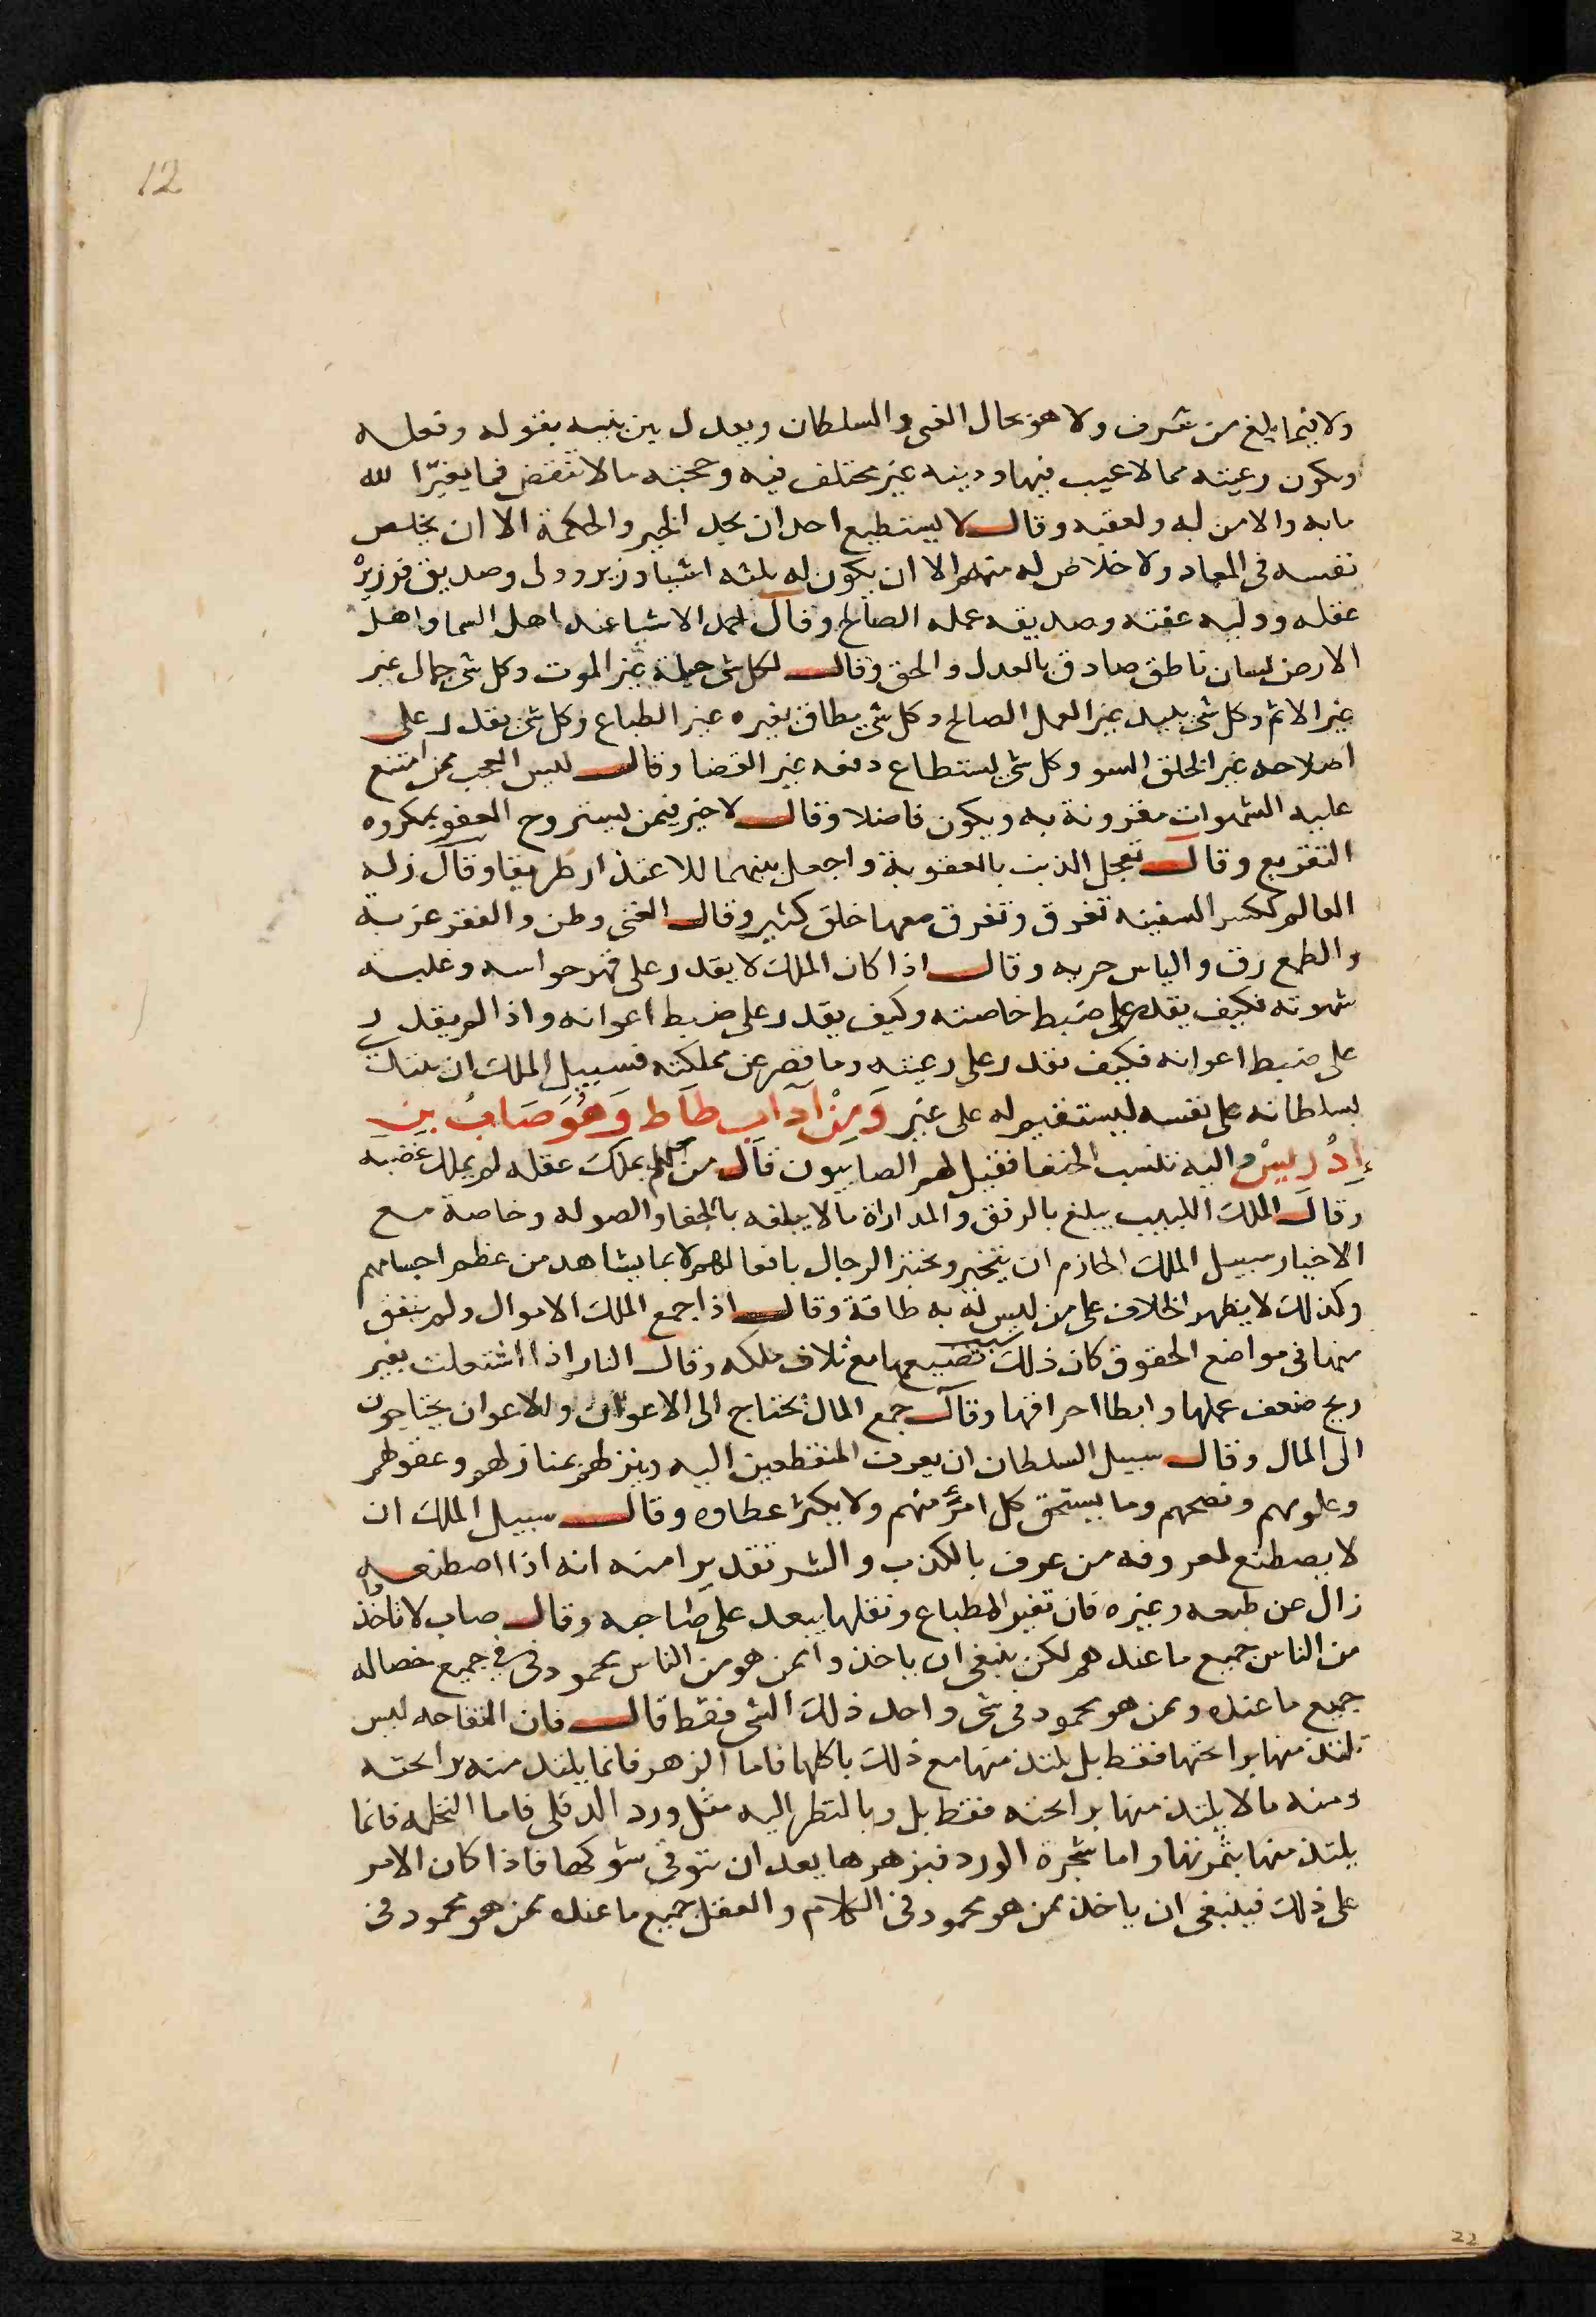 12
ولا فيما بلغ من شرف ولا هو بحال الغنى والسلطان ويعدل بين نيته بقوله وفعله
ويكون رعيته مما لا عيب فيها ودينه غير مختلف فيه وحجته ما لا تنقض فما يغير الله
ما به والامن له ولعقبه وقال لا يستطيع احد ان يجد الخير والحكمة الا ان يخلص
نفسه فى المعاد ولا خلاص له منهم الا ان يكون له ثلثه اشيا وزير وولى وصديق فوزيره
عقله ووليه عفته وصديقه عمله الصالح وقال احمد الاشيا عند اهل السما واهل
الارض لسان ناطق صادق بالعدل والحق وقال لكل شى حيلة غير الموت وكل شى جمال غير
غير الاثم وكل شى يبيد غير العمل الصالح وكل شى يطاق تغيره غير الطباع وكل شى يقدر على
اصلاحه غير الخلق السو وكل شى يستطاع دفعه غير القضا وقال ليس العجب ممن امتنع
عليه الشهوات مقرونة به ويكون فاضلا وقال لا خير فيمن يستروح العفو بمكروه
التقريع وقال تعجل الذنب بالعقوبة واجعل بينهما للاعتذار طريقا وقال زلة
العالم ككسر السفينه تغرق وتغرق معها خلق كثير وقال الغنى وطن والفقر غربة
والطمع رق والياس حريه وقال اذا كان الملك لا يقدر على قهر حواسه وغلبة
شهوته فكيف يقدر على ضبط خاصته وكيف يقدر على ضبط اعوانه واذا لم يقدر
على ضبط اعوانه فكيف يقدر على رعيته وما قصر عن مملكته فسبيل الملك ان
بسلطانه على نفسه ليستقيم له على غير وَمِنْ آدَابِ طَاط وَهُوَ صَابُ بن
إِدْرِيسْ واليه تنتسب الحنفا فقيل لهم الصابيون قال من لم يملك عقله لم يملك غضبه
وقال الملك اللبيب يبلغ بالرفق والمداراة ما لا يبلغه بالجفا والصوله وخاصة مع
الاخيار سبيل الملك الحازم ان يتخير ويختبر الرجال بافعالهم لا بما يشاهد من عظم اجسامهم
وكذلك لا يظهر الخلاف على من ليس له به طاقة وقال اذا جمع الملك الاموال ولم ينفق
منها فى مواضع الحقوق كان ذلك تضييعها مع تلاف ملكه وقال النار اذا اشتعلت بغير
ريح ضعف عملها وابطا احراقها وقال جمع المال يحتاج الى الاعوان والاعوان يحتاجون
الى المال وقال سبيل السلطان ان يعرف المنقطعين اليه وينزلهم بمنازلهم وعقولهم
وعلومهم ونصحهم وما يستحق كل امرئ منهم ولا يكثر عطاوه وقال سبيل الملك ان
لا يصطنع لمعروفه من عرف بالكذب والشر تقديرا منه انه اذا اصطنعه
زال عن طبعه وغيره فان تغير الطباع ونقلها يبعد على صاحبه وقال صاب لا تاخذ
من الناس جميع ما عندهم لكن ينبغى ان ياخذوا ممن هو من الناس محمود فى جميع خصاله
جميع ما عنده وممن هو محمود فى شى واحد ذلك الشى فقط قال فان التفاحه ليس
تلتذ منها برائحتها فقط بل يلتذ منها مع ذلك باكلها فاما الزهر فانما يلتذ منه برائحته
ومنه ما لا يلتذ منها برائحته فقط بل وبالنظر اليه مثل ورد الدفلى فاما النخله فانما
يلتذ منها بثمرتها واما شجرة الورد فبزهرها بعد ان تتوقى شوكها فاذا كان الامر
على ذلك فينبغى ان ياخذ ممن هو محمود فى الكلام والعقل جميع ما عنده ممن هو محمود فى
22